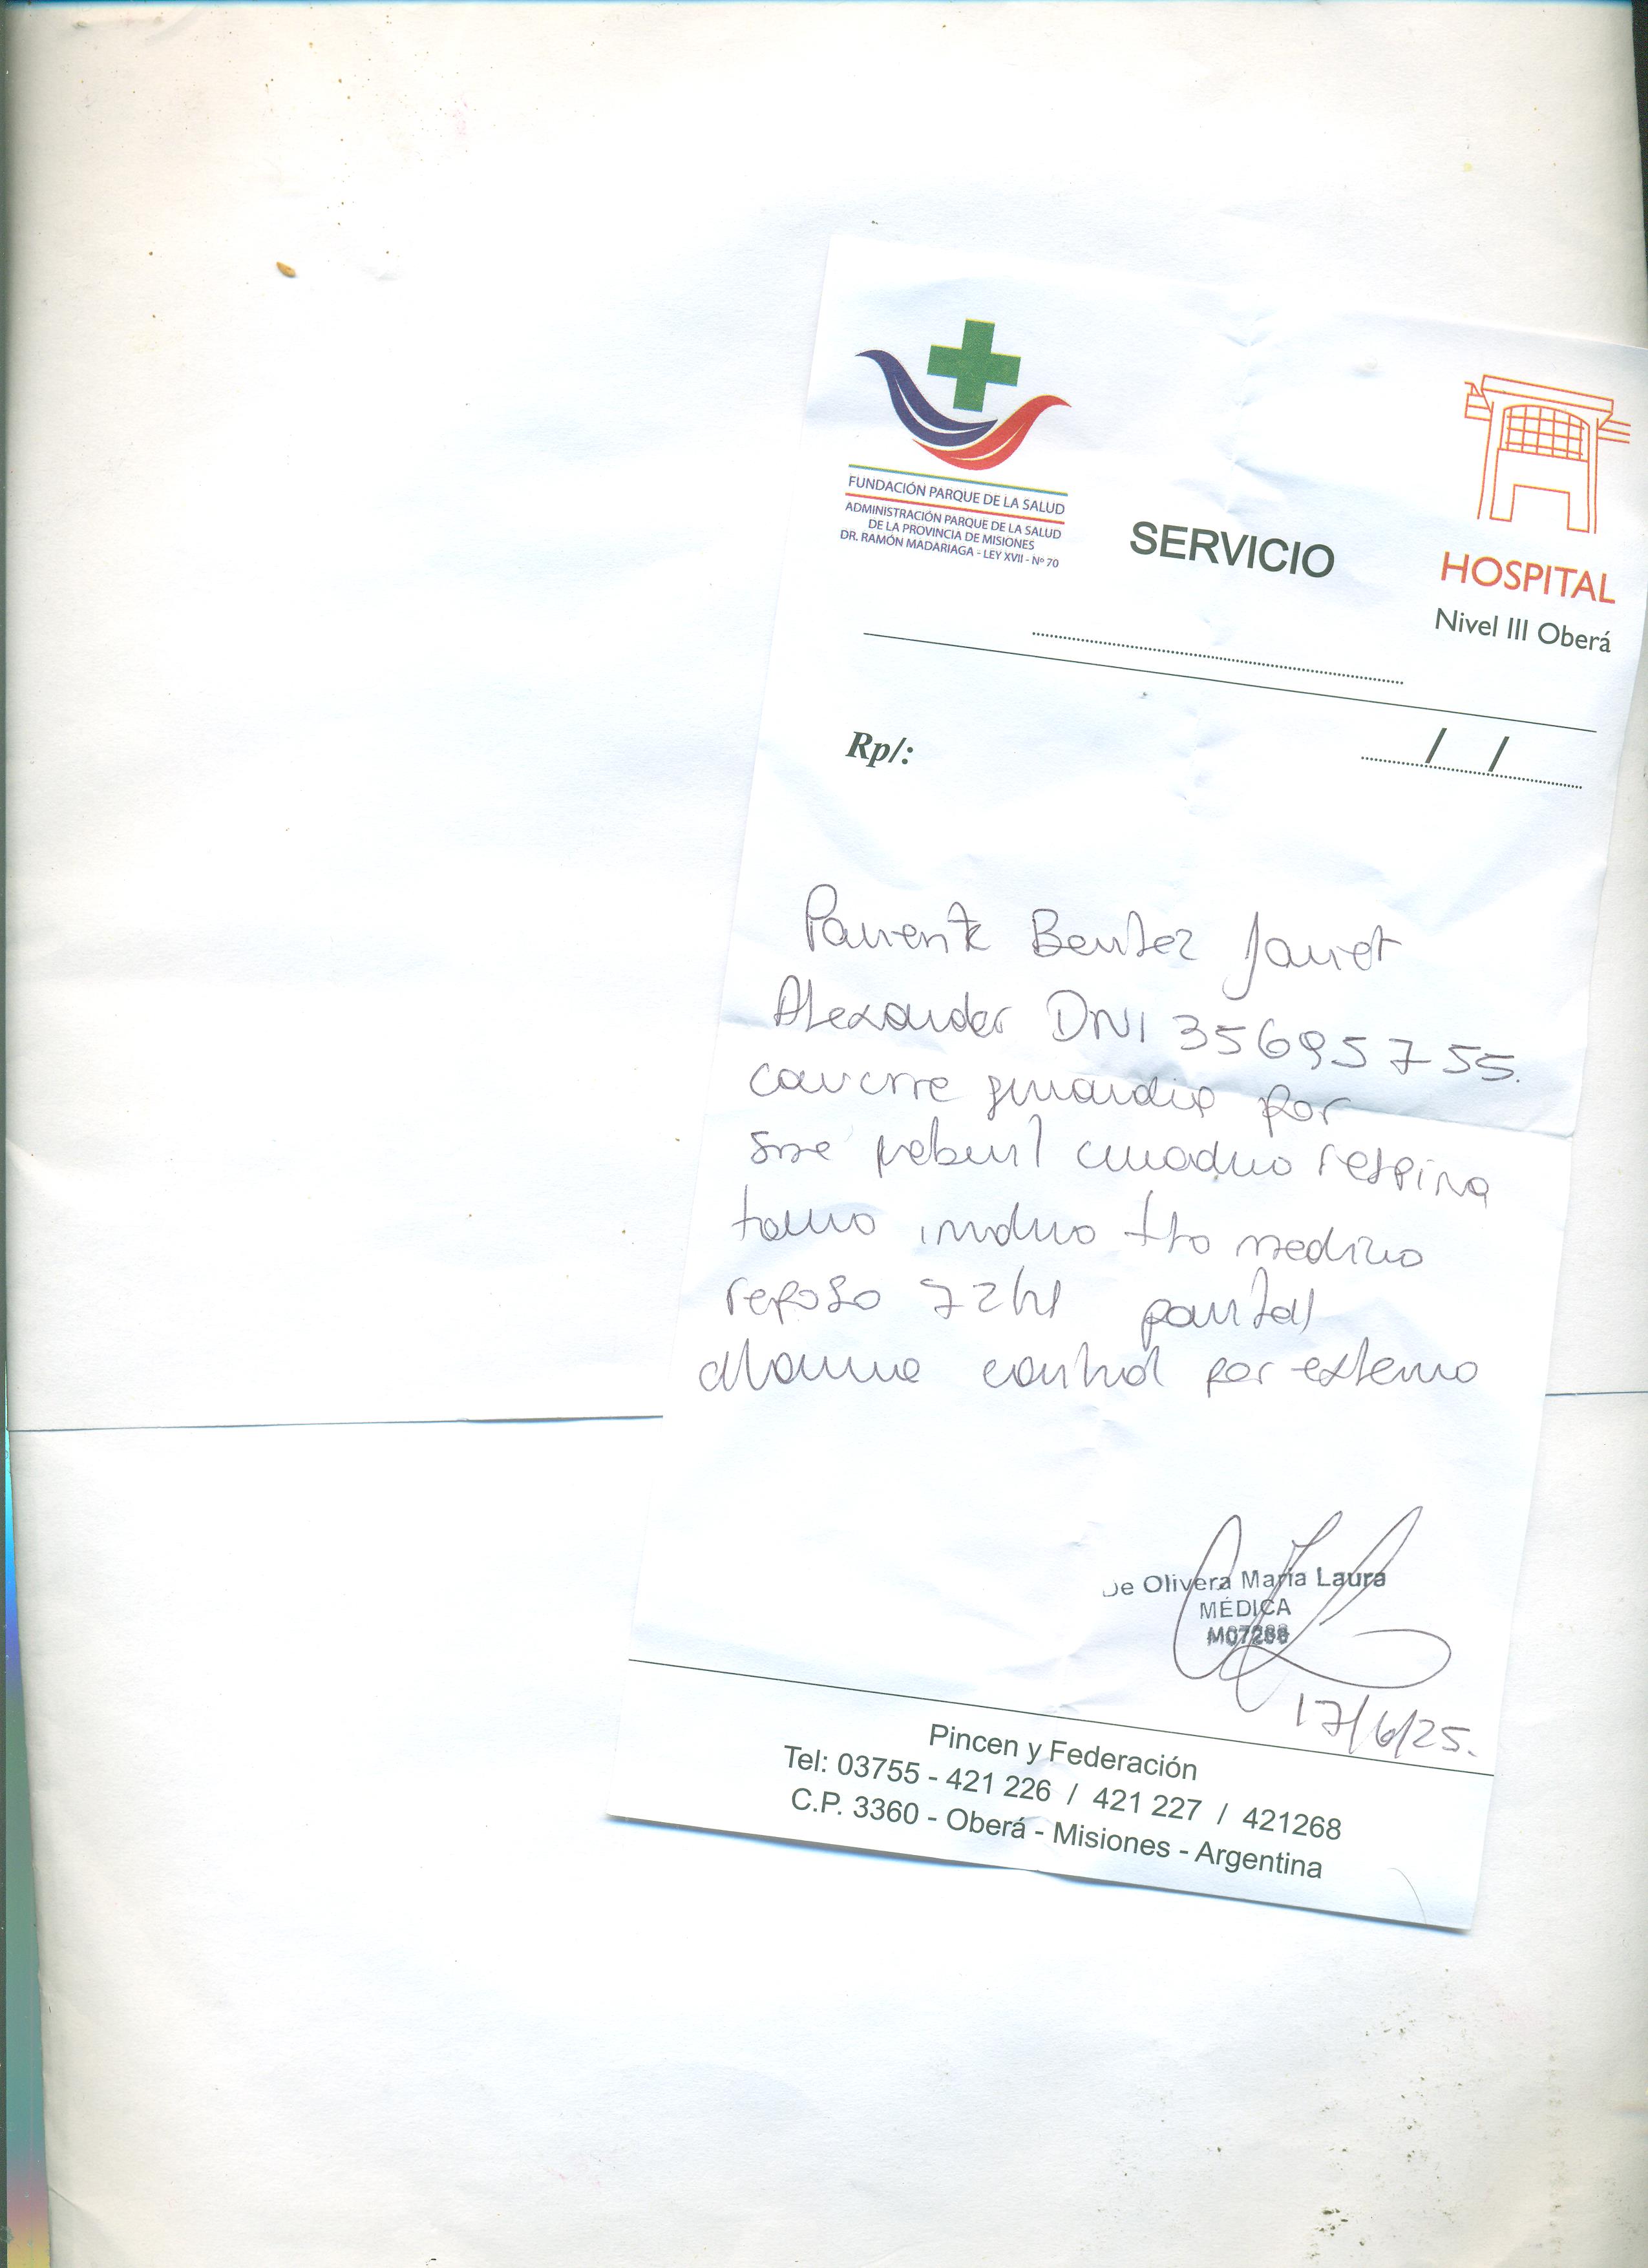 FUNDACIÓN PARQUE DE LA SALUD
ADMINISTRACIÓN PARQUE DE LA SALUD
DE LA PROVINCIA DE MISIONES
DR. RAMÓN MADARIAGA - LEY XVII - Nº 70
SERVICIO
HOSPITAL
Nivel III Oberá
Rp/:
/ /
Paciente Benitez
Alexander DNI 35695755.
concurre guardia por
febril cuadro respira
torio indico tto medico
reposo 72hs pautas
alarma control por externo
De Olivera María Laura
MÉDICA
17/6/25.
Pincen y Federación
Tel: 03755 - 421 226 / 421 227 / 421268
C.P. 3360 - Oberá - Misiones - Argentina